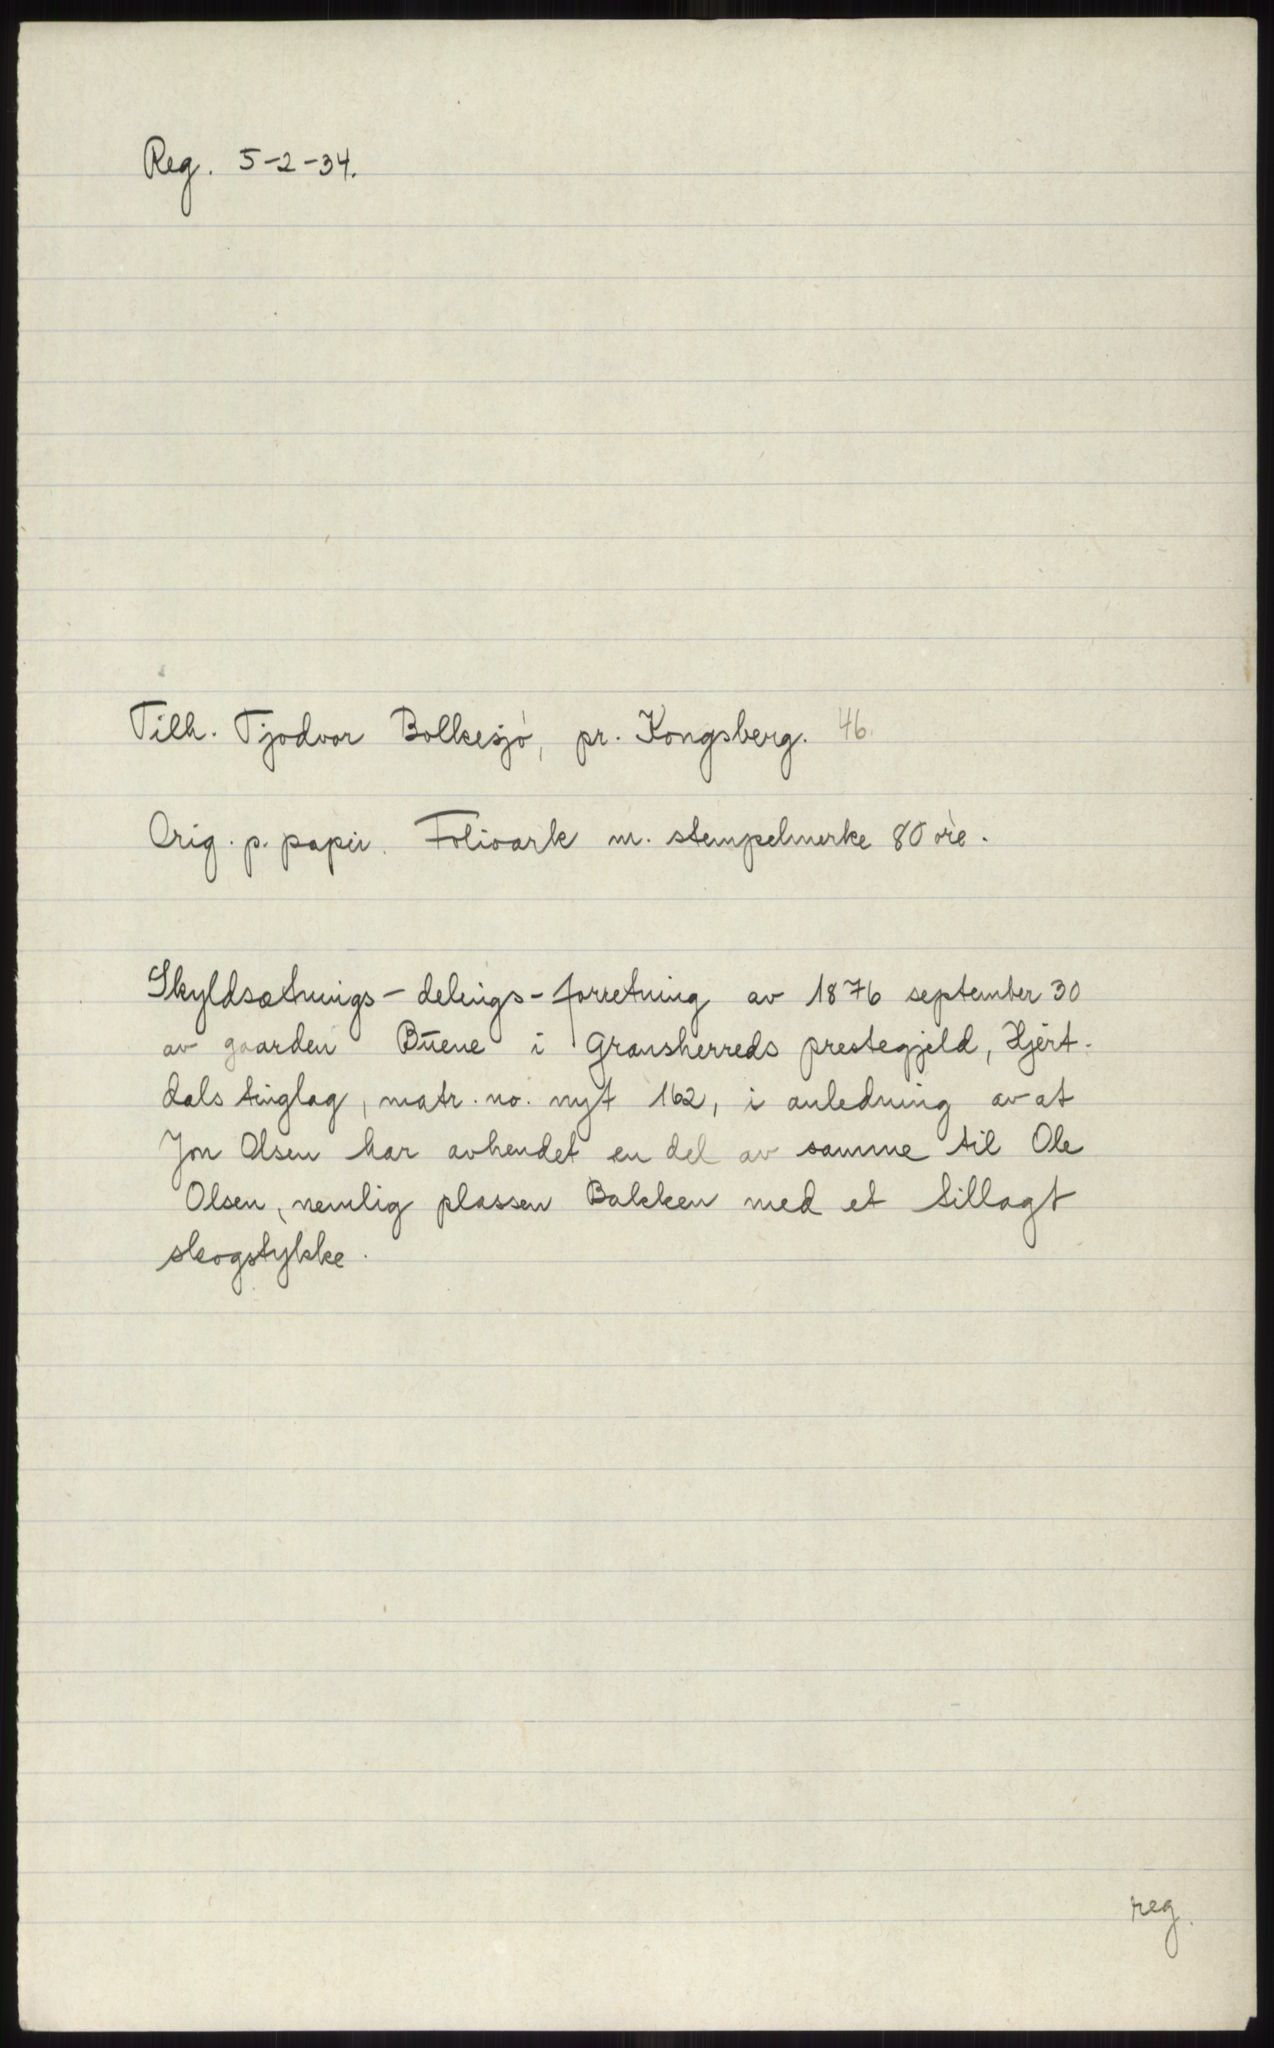 Reg. 5-2-34.
Tilh. Tjodvor Bolkesjø, pr. Kongsberg. 46.
Orig. p. papir. Folioark m. stempelmerke 80 øre.
Skyldsætnings-delings-forretning av 1876 september 30
av gaarden Buene i Gransherreds prestegjeld, Hjert-
dals tinglag, matr. no. nyt 162, i anledning av at
Jon Olsen har avhendet en del av samme til Ole
Olsen, nemlig plassen Bakken med et tillagt
skogstykke.
reg.